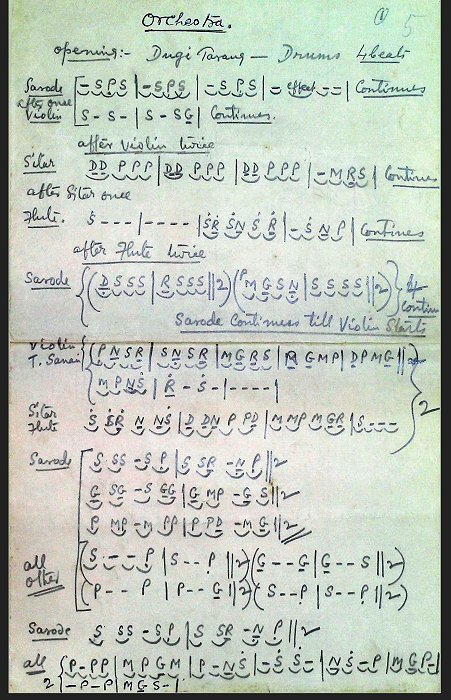 Orchestra.
① 5
opening:- Dugi Tarang — Drums 4 beats
Sarode [-SPS | -SPS | -SPS | - effect -- | Continues
after once
Violin [S-S- | S-SG | Continues.
after Violin twice
Sitar DD PPP | DD PPP | DD PPP | -MRS | Continues
after Sitar once
Flute. Ṡ--- | ---- | ṠṘ ṠN Ṡ Ṙ | -ṠNP | Continues
after Flute twice
Sarode {(DSSS | RSSS ||2) (PMGSN | SSSS ||2)} 4 Contin
Sarode Continues till Violin Starts
Violin
T. Sanai {PNSR | SNSR | MGRS | RGMP | DPMG ||
{MPNṠ | Ṙ-Ṡ- | ---- | } 2
Sitar
Flute Ṡ ṠṘ N NṠ | D DN P PD | M MP M GR | S---
Sarode [S SS -SP | S SR -NP ||2
G SG -S GG | G MP -GS ||2
P MP -M PP | P PD -MG ||2
all
other [(S--P | S--P ||2) (G--G | G---S ||2)
(P--P | P--G ||2) (S--P | S--P ||2)
Sarode S SS -SP | S SR -NP ||2
all {P-PP | MPGM | P-NṠ | -ṠṠ- | NṠ-P | MGP-|
2 {-P-P | MGS-|